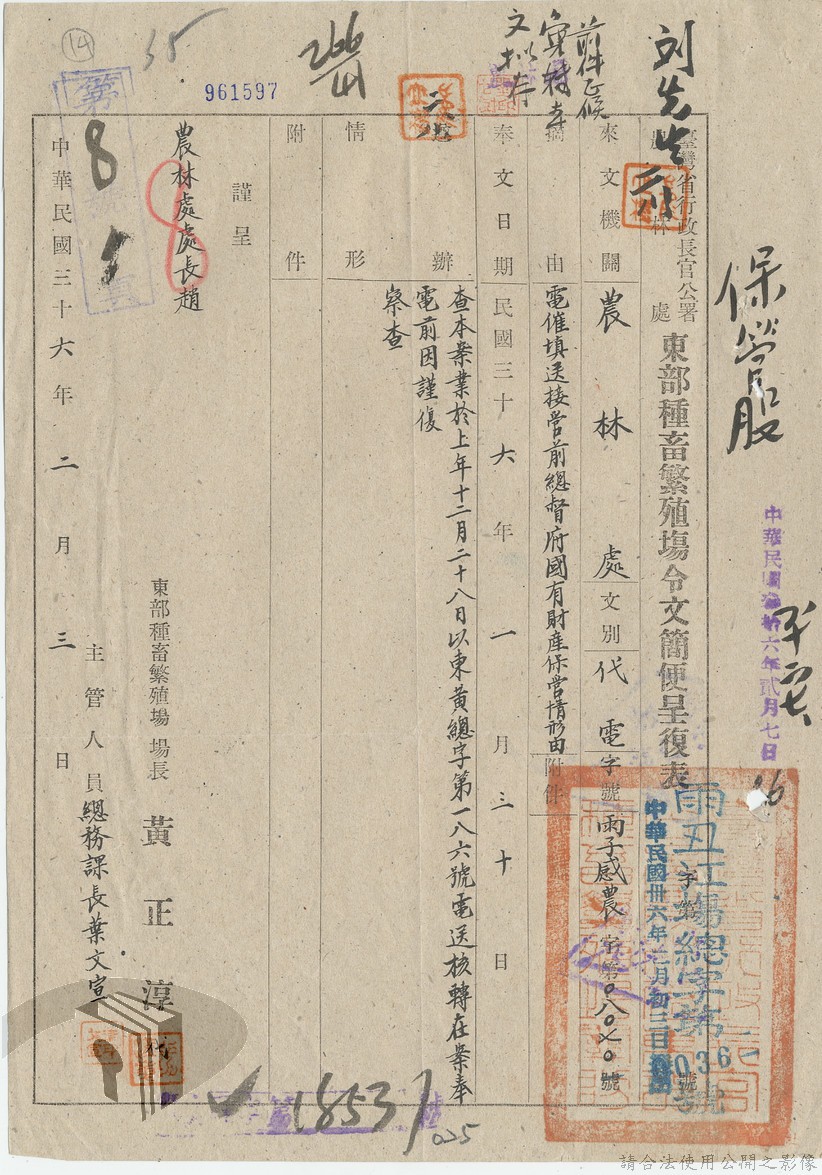 保管股
中華民國參拾六年貳月七日
刘先生
臺灣省行政長官公署
農林處
東部種畜繁殖場令文簡便呈復表
雨丑江場總字第
036
號
字第
號
中華民國卅六年二月初三日
前件正候
來文機關
農林處
文別
代電
字號
雨子感農
字第〇八〇×〇號
摘由
電催填送接管前總督府國有財產保管情形由
附件
奉文日期
民國三十六年一月三十日
辦
情形
查本案業於上年十二月二十八日以東黃總字第一八六號電送核轉在案奉
電前因謹復
察查
附件
謹呈
農林處處長趙
東部種畜繁殖場場長 黃正淳
主管人員 總務課長葉文宣
中華民國三十六年二月三日
961597
14
35
8
18531
025
請合法使用公開之影像